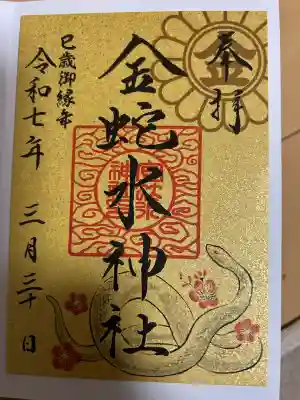 奉拝
金
金蛇水神社
巳歳御縁年
令和七年 三月三十日